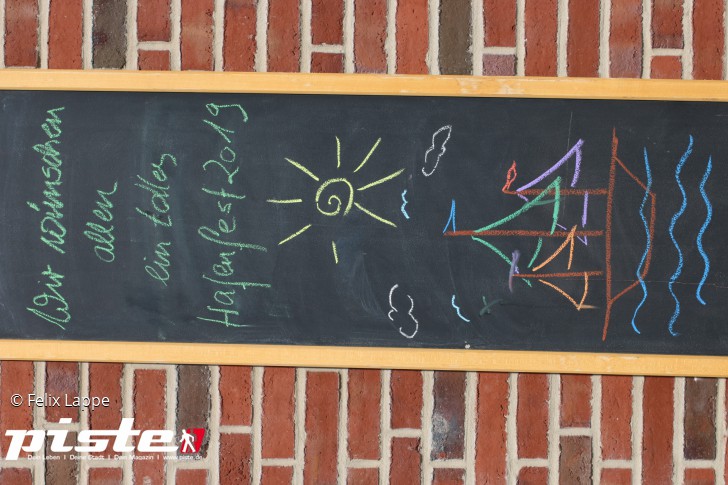 Wir wünschen
allen
ein tolles
Hafenfest 2019
© Felix Lappe
piste
Dein Leben | Deine Stadt | Dein Magazin | www.piste.de